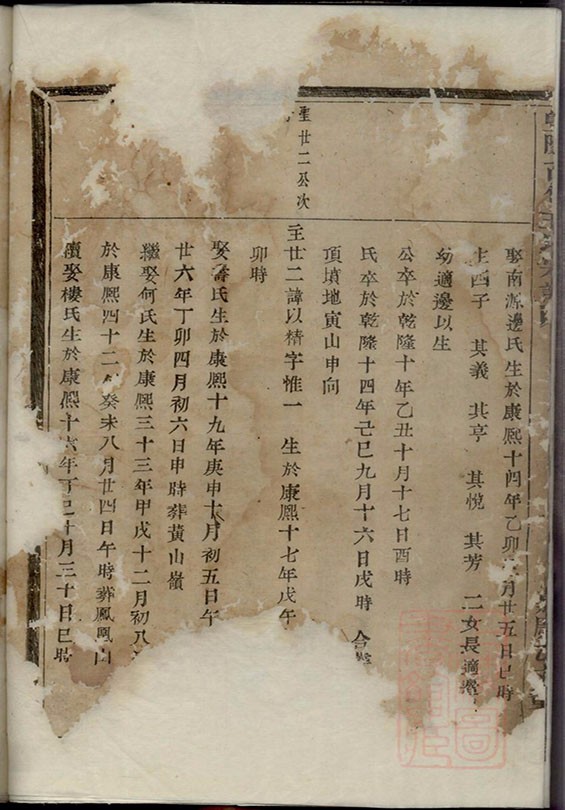 娶南源邊氏生於康熙十四年乙卯 月廿五日巳時
生四子 其義 其亨 其悅 其芳 二女長適
幼適邊以生
公卒於乾隆十年乙丑十月十七日酉時
氏卒於乾隆十四年己巳九月十六日戌時 合葬
頂墳地寅山申向
聖廿二公次
聖廿二諱以精字惟一 生於康熙十七年戊午
卯時
娶壽氏生於康熙十九年庚申十月初五日午
廿六年丁卯四月初六日申時葬黃山嶺
繼娶何氏生於康熙三十三年甲戌十二月初八
於康熙四十二年癸未八月廿四日午時葬鳳凰山
續娶樓氏生於康熙十六年丁巳十月三十日巳時